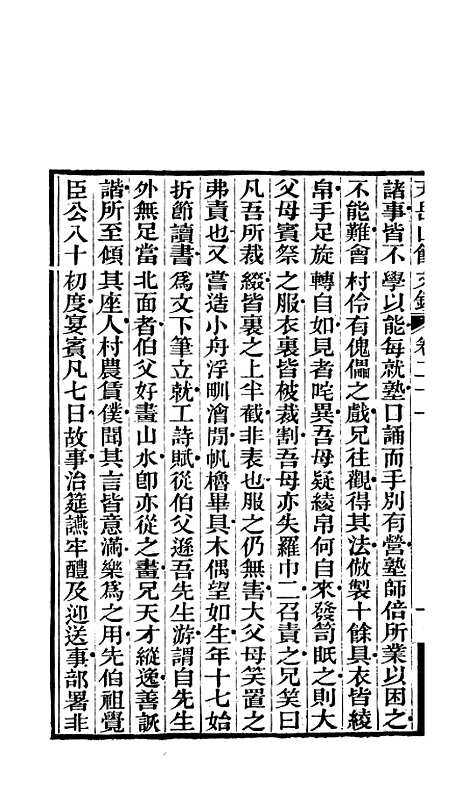 諸事皆不學以能每就塾口誦而手別有營塾師倍所業以因之
不能難會村伶有傀儡之戲兄往觀得其法倣製十餘具衣皆綾
帛手足旋轉自如見者咤異吾母疑綾帛何自來發笥眂之則大
父母賓祭之服衣裏皆被裁割吾母亦失羅巾二召責之兄笑曰
凡吾所裁綴皆裏之上半截非表也服之仍無害大父母笑置之
弗責也又嘗造小舟浮甽澮閒帆櫓畢具木偶望如生年十七始
折節讀書爲文下筆立就工詩賦從伯父遜吾先生游謂自先生
外無足當北面者伯父好畫山水卽亦從之畫兄天才縱逸善詼
諧所至傾其座人村農賃僕聞其言皆意滿樂爲之用先伯祖覺
臣公八十初度宴賓凡七日故事治筵讌牢醴及迎送事部署非